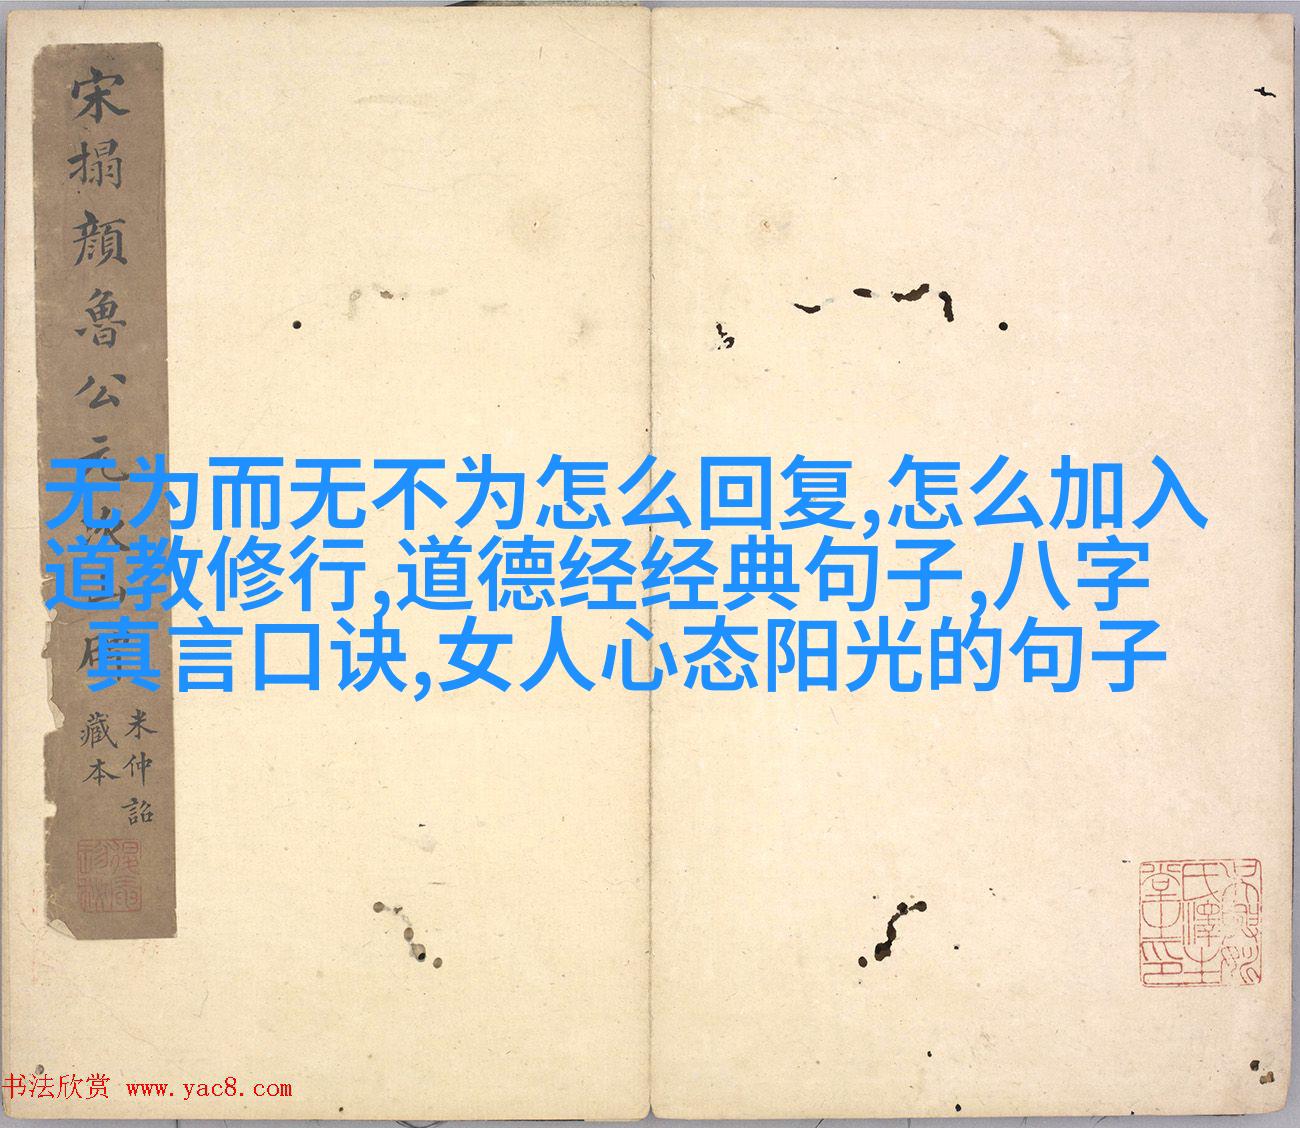 宋搨顔魯公元次山碑
米仲詔
藏本
无为而无不为怎么回复,怎么加入
道教修行,道德经经典句子,八字
真言口诀,女人心态阳光的句子
书法欣赏 www.yac8.com